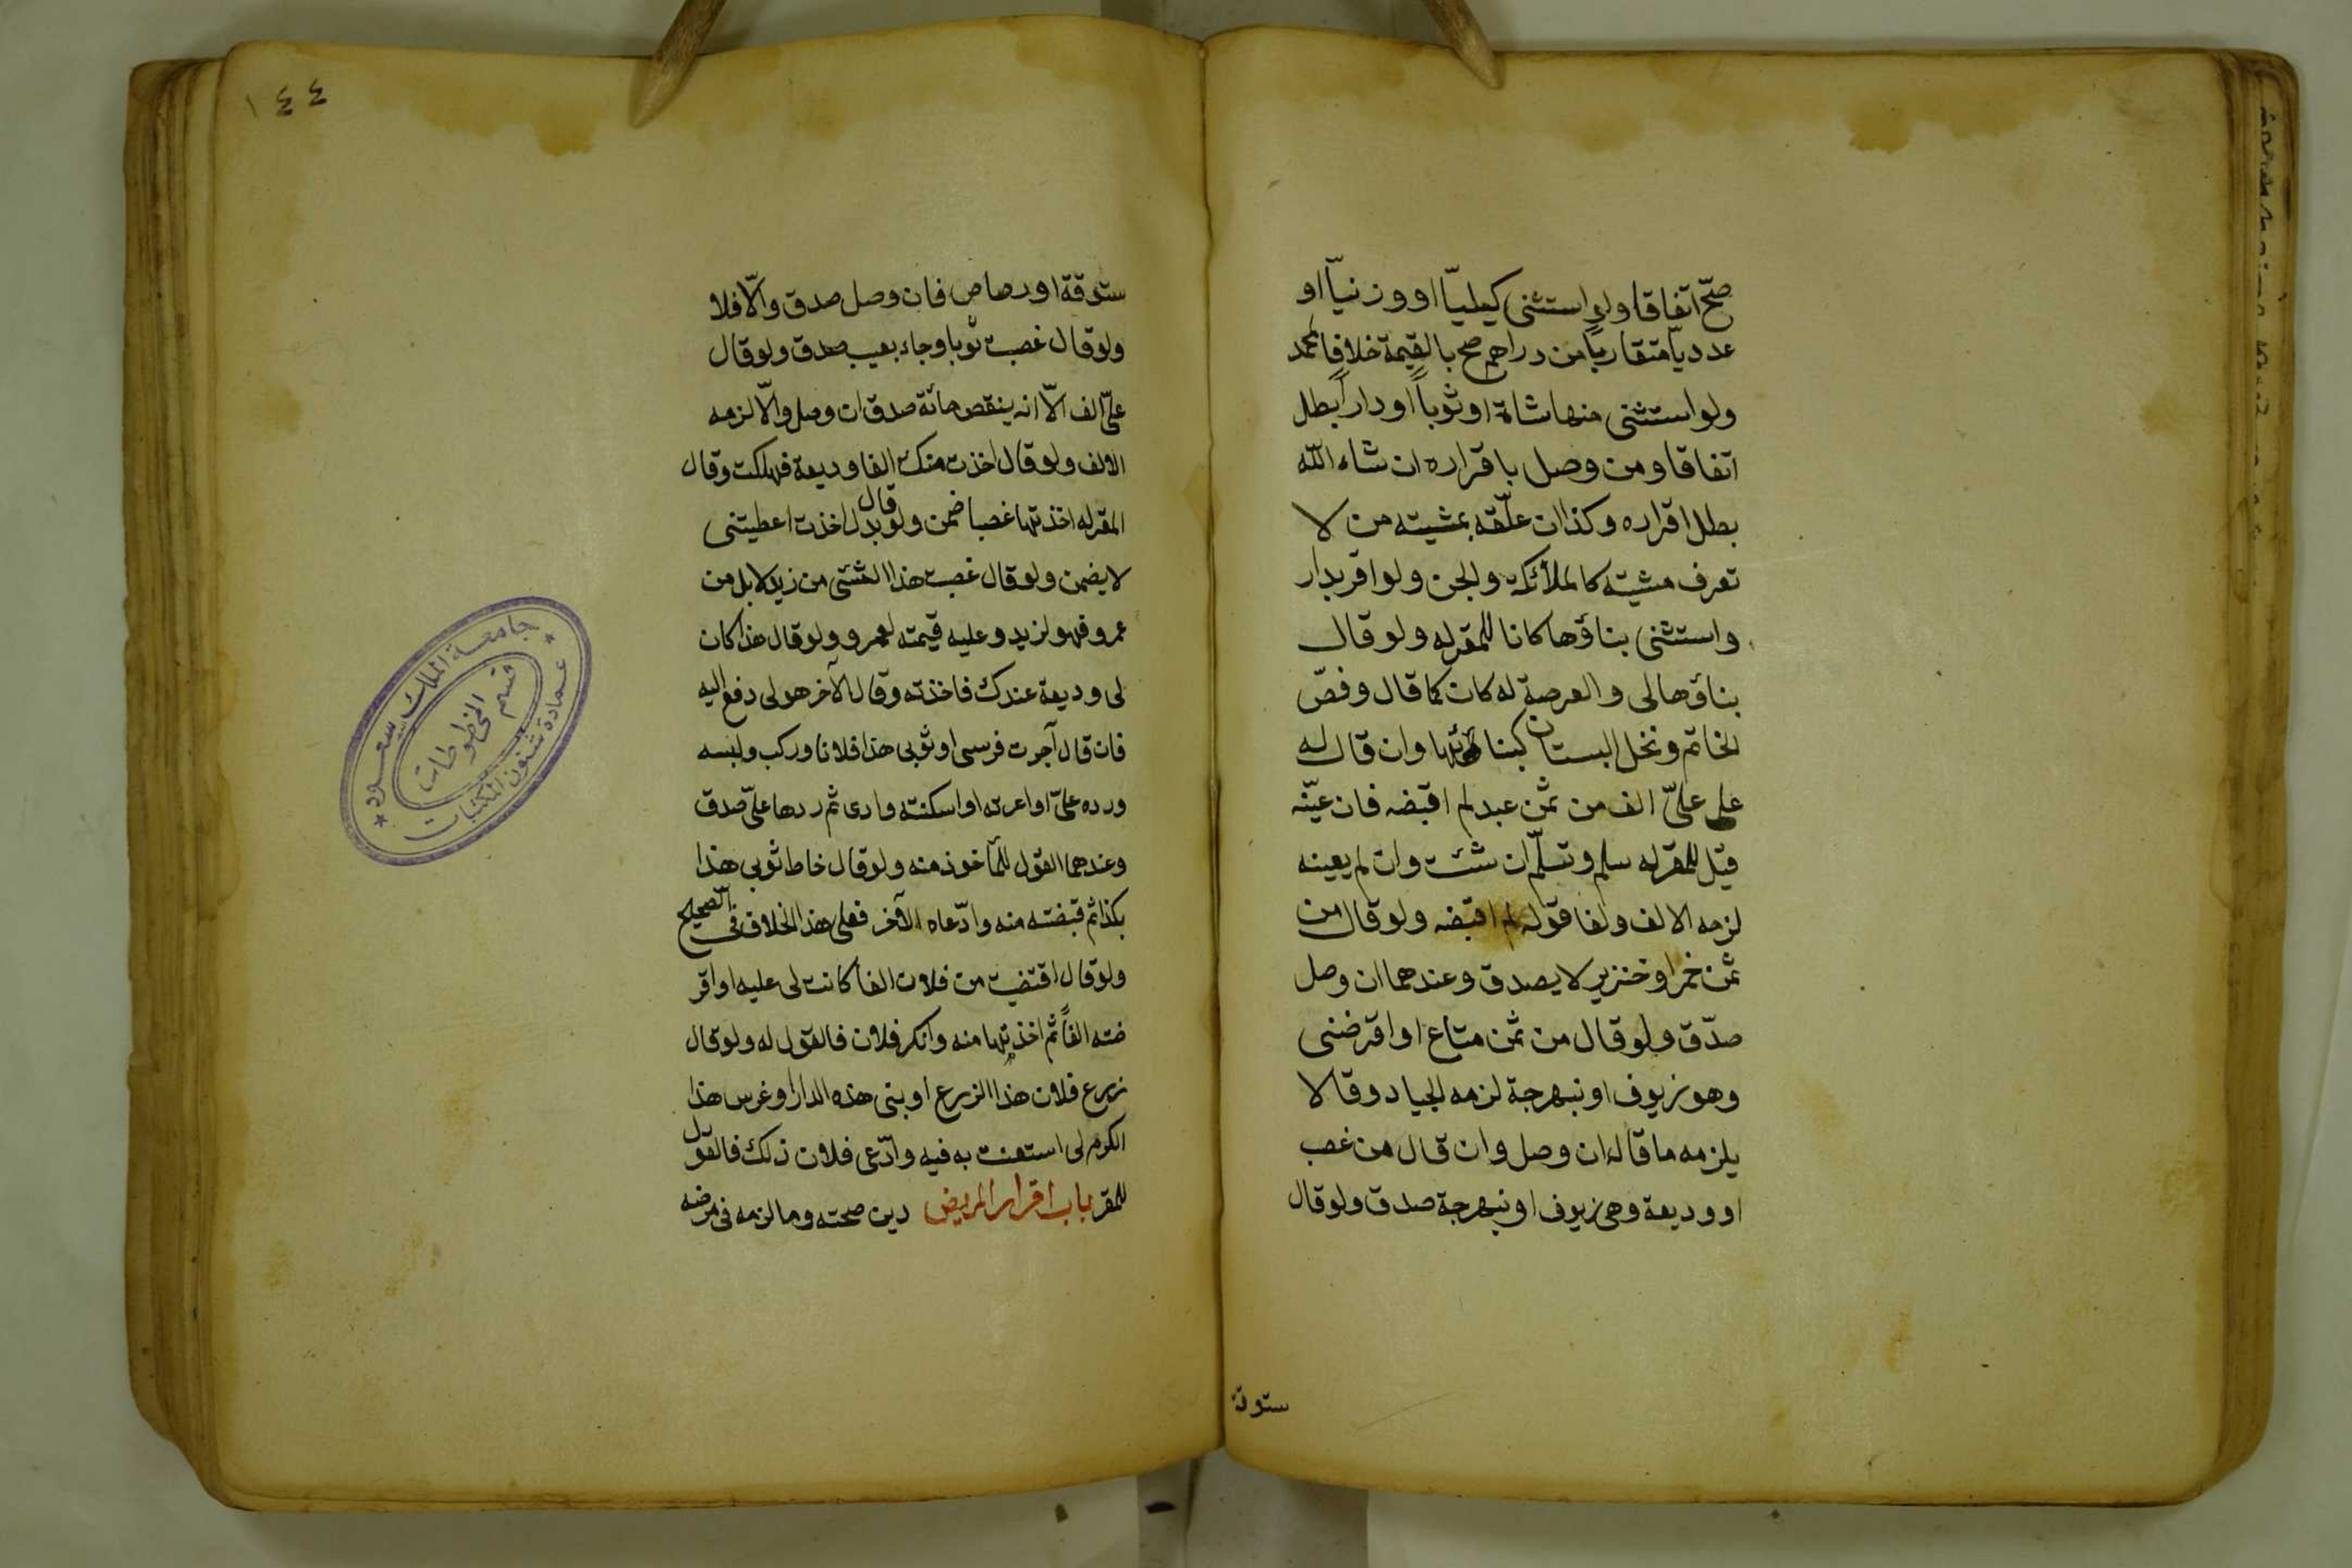 صحّ اتفاقا ولو استثنى كيليّا او وزنيّا او
عدديّا متقاربا من دراهم صح بالقيمة خلافا لمحمد
ولو استثنى منها شاة او ثوباً او داراً بطل
اتفاقا ومن وصل باقراره ان شاء اللّه
بطل اقراره وكذا ان علّقه بمشيته من لا
تعرف مشيته كالملائكة والجن ولو اقر بدار
واستثنى بناؤها كانا للمقر له ولو قال
بناؤها لى والعرصة له كان كما قال وفصّ
الخاتم ونخل البستان كبنائها وان قال له
على علىّ الف من ثمن عبد لم اقبضه فان عيّنه
قيل للمقر له سلم وتسلّم ان شئت وان لم يعينه
لزمه الالف ولغا قوله لم اقبضه ولو قال من
ثمن خمر او خنزير لا يصدق وعندهما ان وصل
صدّق ولو قال من ثمن متاع او اقرضنى
وهو زيوف او نبهرجة لزمه الجياد وقالا
يلزمه ما قاله ان وصل وان قال من غصب
او وديعة وهى زيوف او نبهرجة صدق ولو قال
ستوقة
١٤٤
ستوقة او رصاص فان وصل صدق والّا فلا
ولو قال غصبت ثوبا وجاء بعيب صدق ولو قال
علىّ الف الّا انه ينقص مائة صدق ان وصل والّا لزمه
الالف ولو قال اخذت منك الفا وديعة فهلكت وقال
المقر له اخذتها غصبا ضمن ولو قال بدل اخذت اعطيتنى
لا يضمن ولو قال غصبت هذا الشئ من زيد لا بل من
عمرو فهو لزيد وعليه قيمته لعمرو ولو قال هذا كان
لى وديعة عندك فاخذته وقال الآخر هو لى دفع اليه
فان قال آجرت فرسى او ثوبى هذا فلانا وركب ولبسه
ورده علىّ او اعرته او اسكنته دارى ثم ردها علىّ صدق
وعندهما القول للمأخوذ منه ولو قال خاط ثوبى هذا
بكذا ثم قبضته منه وادّعاه الآخر فعلى هذا الخلاف فى الصحيح
ولو قال اقتضيت من فلان الفا كانت لى عليه او اقر
ضته الفاً ثم اخذتها منه وانكر فلان فالقول له ولو قال
زرع فلان هذا الزرع او بنى هذه الدار او غرس هذا
الكرم لى استعنت به فيه وادّعى فلان ذلك فالقول
للمقر باب اقرار المريض دين صحته وما لزمه فى مرضه
جامعة الملك سعود
عمادة شئون المكتبات
قسم المخطوطات